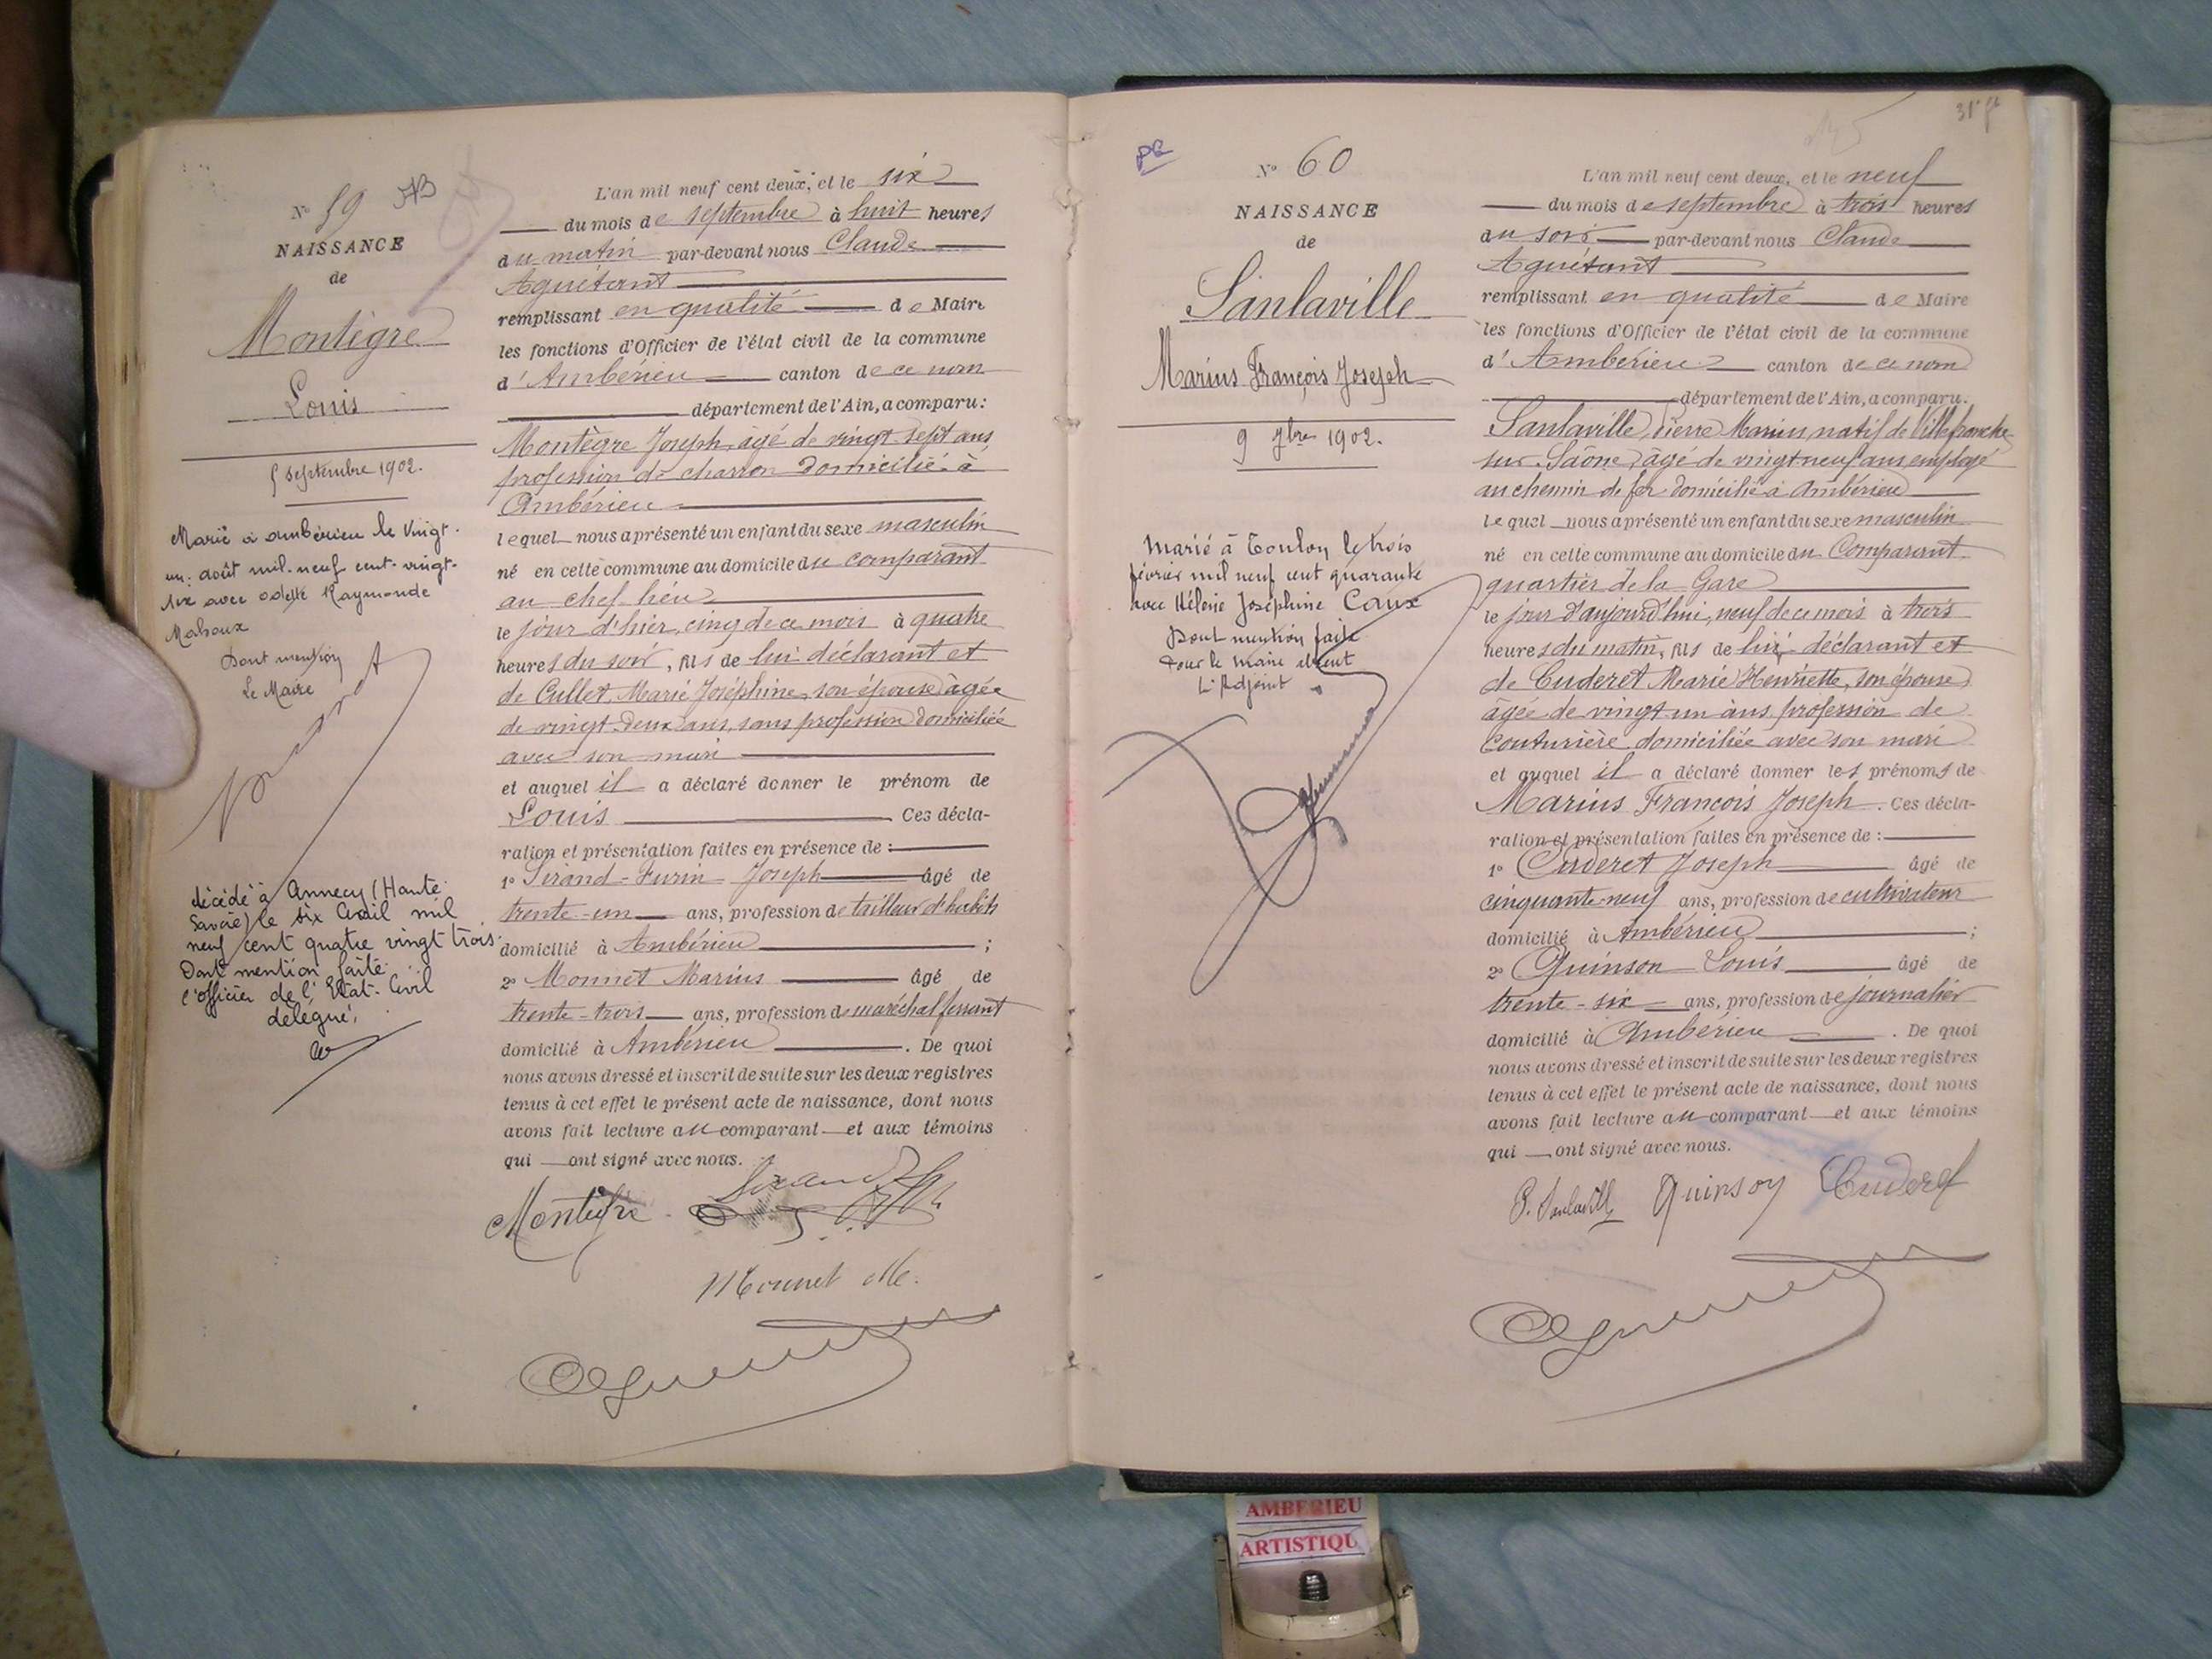 N° 59
NAISSANCE
de
Montègre
Louis
5 septembre 1902.
Marié à Ambérieu le Vingt-
un août mil neuf cent vingt-
six avec Odette Raymonde
Mahoux
Dont mention
Le Maire
décédé à Annecy (Haute
Savoie) le six avril mil
neuf cent quatre vingt trois.
Dont mention faite
l'officier de l'Etat-Civil
délégué,
L'an mil neuf cent deux, et le six
du mois de septembre à huit heures
du matin par-devant nous Claude
Aguétant
remplissant en qualité de Maire
les fonctions d'Officier de l'état civil de la commune
d'Ambérieu canton de ce nom
département de l'Ain, a comparu:
Montègre Joseph, âgé de vingt-sept ans
profession de charron domicilié à
Ambérieu
lequel nous a présenté un enfant du sexe masculin
né en cette commune au domicile du comparant
au chef-lieu
le jour d'hier, cinq de ce mois à quatre
heures du soir, fils de lui déclarant et
de Cullet Marie Joséphine, son épouse âgée
de vingt-deux ans, sans profession domiciliée
avec son mari
et auquel il a déclaré donner le prénom de
Louis Ces décla-
ration et présentation faites en présence de :
1° Sirand-Furin Joseph âgé de
trente-un ans, profession de tailleur d'habits
domicilié à Ambérieu ;
2° Monnet Marius âgé de
trente-trois ans, profession de maréchal ferrant
domicilié à Ambérieu . De quoi
nous avons dressé et inscrit de suite sur les deux registres
tenus à cet effet le présent acte de naissance, dont nous
avons fait lecture au comparant et aux témoins
qui ont signé avec nous.
Montègre
Monnet M.
N° 60
NAISSANCE
de
Sanlaville
Marius François Joseph
9 7bre 1902.
Marié à Toulon le trois
février mil neuf cent quarante
avec Hélène Joséphine Caux
Dont mention faite
Pour le Maire absent
L'Adjoint
L'an mil neuf cent deux, et le neuf
du mois de septembre à trois heures
du soir par-devant nous Claude
Aguétant
remplissant en qualité de Maire
les fonctions d'Officier de l'état civil de la commune
d'Ambérieu canton de ce nom
département de l'Ain, a comparu.
Sanlaville, Pierre Marius, natif de Villefranche-
sur-Saône, âgé de vingt neuf ans, employé
au chemin de fer domicilié à Ambérieu
lequel nous a présenté un enfant du sexe masculin
né en cette commune au domicile du Comparant
quartier de la Gare
le jour d'aujourd'hui, neuf de ce mois à trois
heures du matin, fils de lui déclarant et
de Cuderet Marie Henriette, son épouse
âgée de vingt un ans profession de
Couturière domiciliée avec son mari
et auquel il a déclaré donner les prénoms de
Marius François Joseph. Ces décla-
ration et présentation faites en présence de :
1° Cuderet Joseph âgé de
cinquante-neuf ans, profession de cultivateur
domicilié à Ambérieu ;
2° Quinson Louis âgé de
trente-six ans, profession de journalier
domicilié à Ambérieu . De quoi
nous avons dressé et inscrit de suite sur les deux registres
tenus à cet effet le présent acte de naissance, dont nous
avons fait lecture au comparant et aux témoins
qui ont signé avec nous.
P. Sanlaville Quinson Cuderet
AMBERIEU
ARTISTIQU